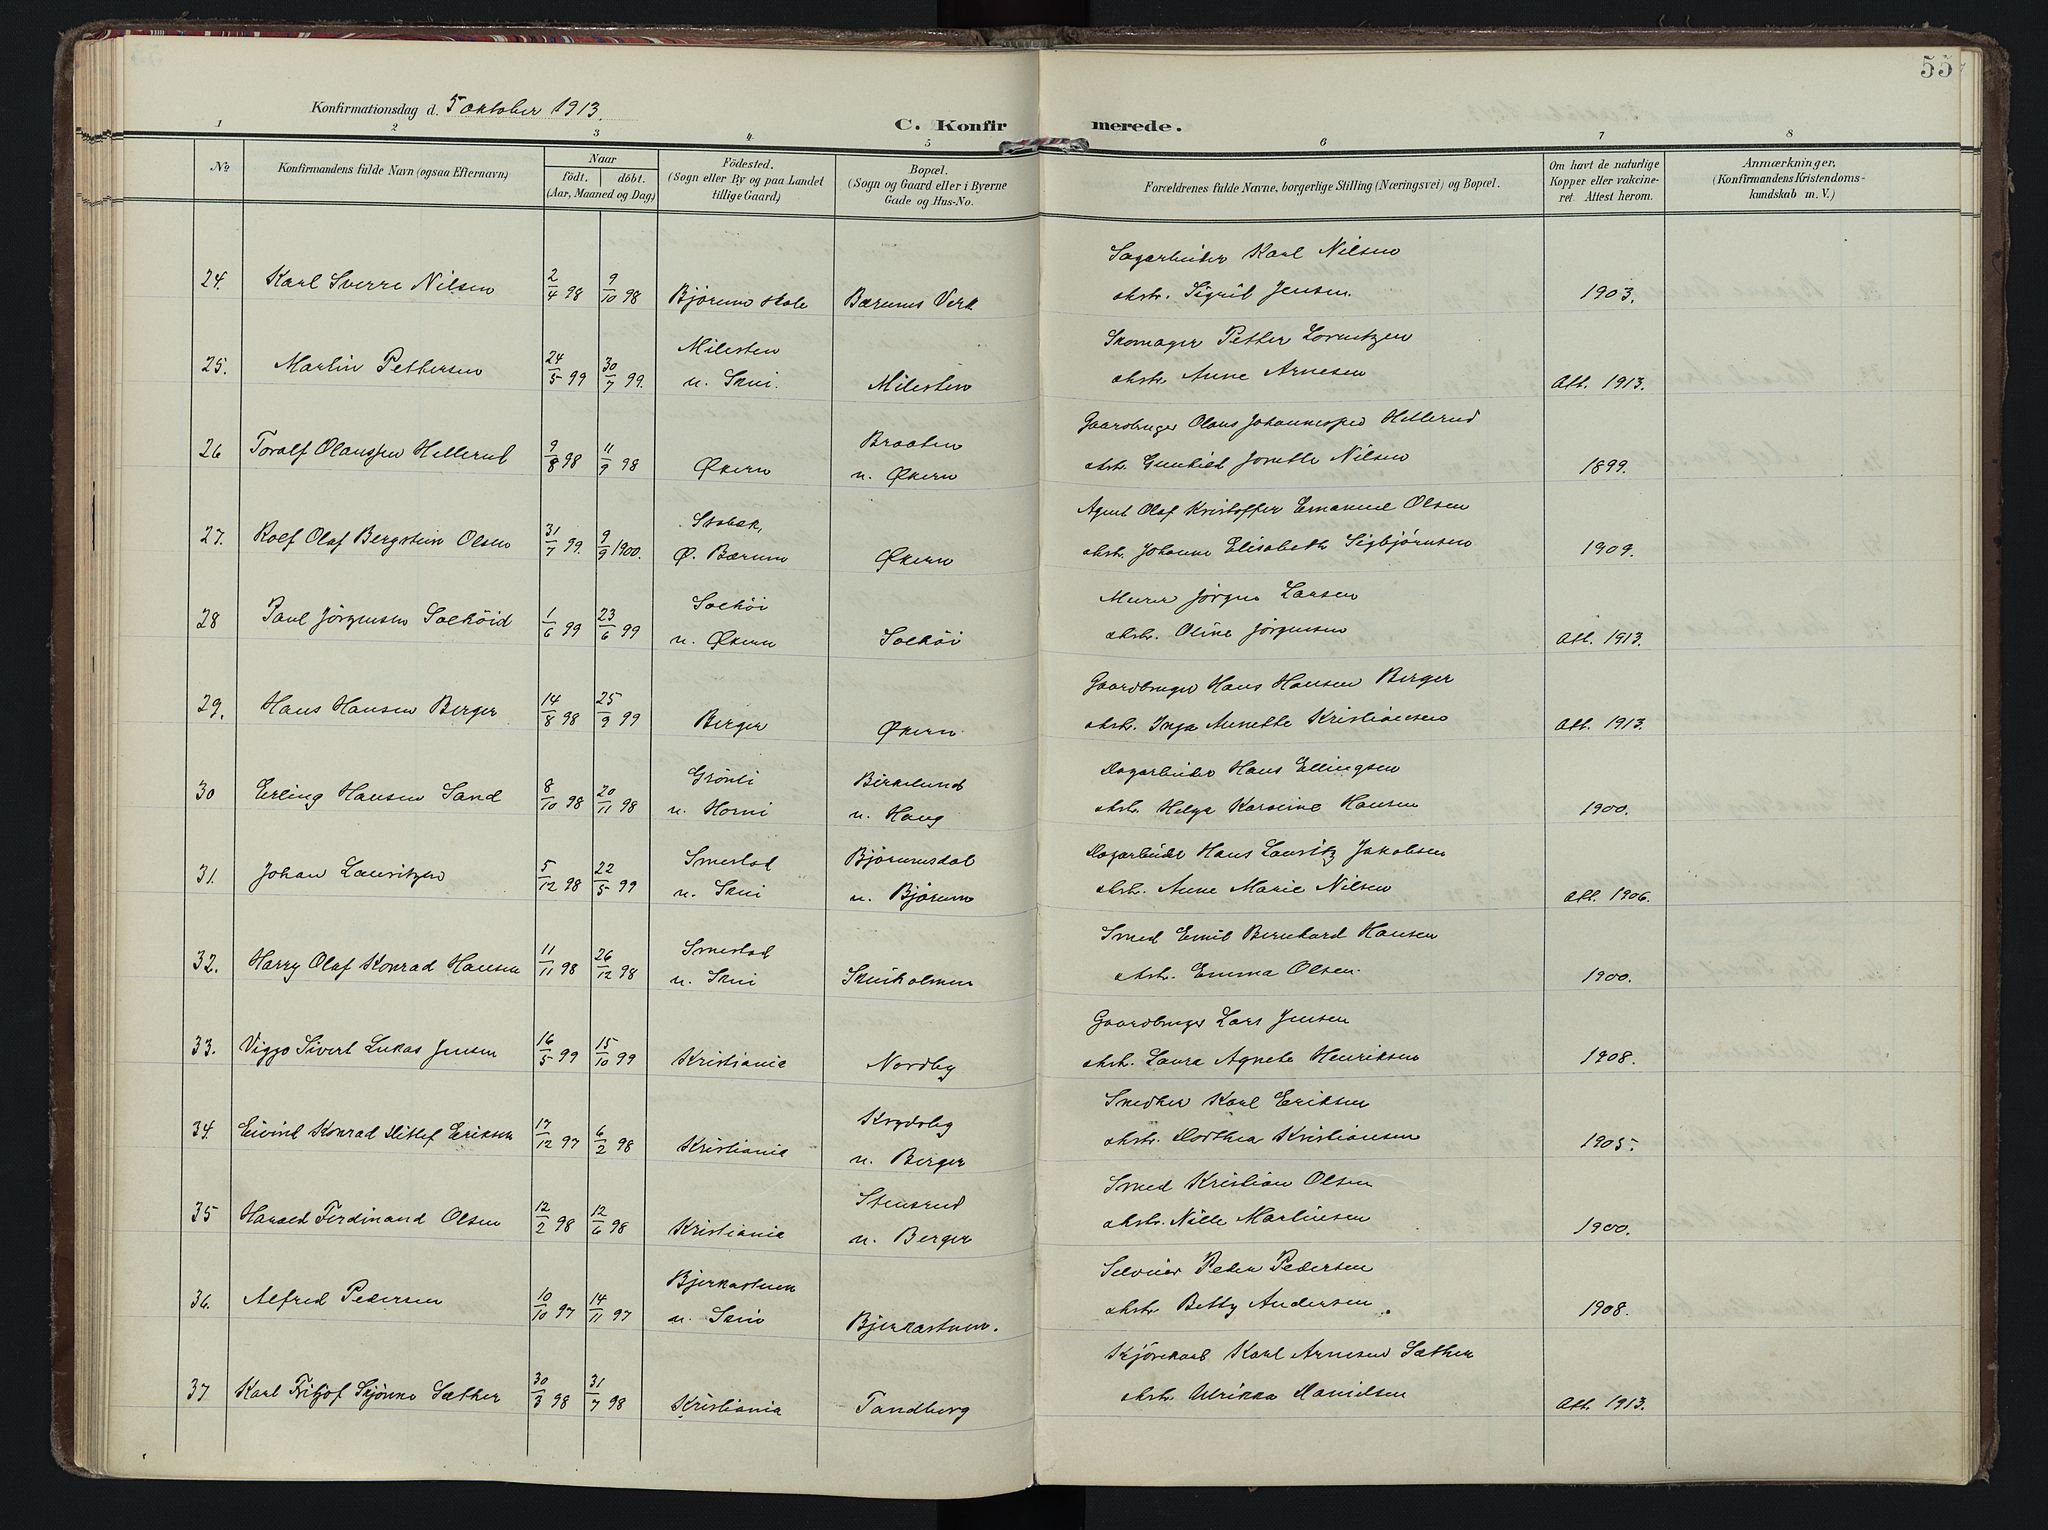 55
Konfirmationsdag d. 5 oktober 1913.
C. Konfirmerede.
1 2 3 4 5 6 7 8
No
Konfirmandens fulde Navn (ogsaa Efternavn)
Naar
födt. döbt.
(Aar, Maaned og Dag)
Födested.
(Sogn eller By og paa Landet
tillige Gaard)
Bopæl.
(Sogn og Gaard eller i Byerne
Gade og Hus-No.
Forældrenes fulde Navne, borgerlige Stilling (Næringsvei) og Bopæl.
Om havt de naturlige
Kopper eller vakcine-
ret. Attest herom.
Anmærkninger.
(Konfirmandens Kristendoms-
kundskab m. V.)
Sagarbeider Karl Nilsen
24. Karl Sverre Nilsen 2/4 98 9/10 98 Bjørum skole Bærums Verk ekstr. Sigrid Jensen. 1903.
Milesten Skomager Petter Lorentzen
25. Martin Pettersen 24/5 99 30/7 99. u. Skui. Milesten ekstr. Anne Arnesen Att. 1913.
Braaten Gaardbruger Olaus Johannesen Hellerud
26 Toralf Olaussen Hellerud 9/8 98 11/9 98 Økern u. Økern ekstr. Gunhild Jonette Nilsen 1899.
Stabæk, Agent Olaf Kristoffer Emanuel Olsen
27. Rolf Olaf Bergstein Olsen 31/7 99. 9/9 1900. Ø. Bærum Økern ekstr. Johanne Elisabeth Sigbjørnsen 1909.
Solhöi Murer Jørgen Larsen
28 Paul Jörgensen Solhöid 1/6 99 23/6 99 u. Økern Solhöi ekstr. Oline Jørgensen Att. 1913.
Gaardbruger Hans Hansen Berger
29. Hans Hansen Berger 14/8 98 25/9 99 Berger Økern ekstr. Inga Annette Kristiansen Att. 1913.
Grönli Birkelund Dagarbeider Hans Ellingsen
30 Erling Hansen Sand 8/10 98 20/11 98 u. Horni u. Haug ekstr. Helga Karoline Hansen 1900.
Smestad Bjørumsdal Dagarbeider Hans Lauritz Jakobsen
31. Johan Lauritzen 5/12 98 22/5 99 u. Skui u. Bjørum ekstr. Anne Marie Nilsen Att. 1906.
Smestad Smed Emil Bernhard Hansen
32. Harry Olaf Konrad Hansen 11/11 98 26/12 98 u. Skui Skuiholmen ekstr. Emma Olsen. 1900.
Gaardbruger Lars Jensen
33. Viggo Sivert Lukas Jensen 16/5 99 15/10 99 Kristiania Nordby ekstr. Laura Agnete Henriksen 1908.
Krydsby Snedker Karl Eriksen
34. Eivind Konrad Ditlef Eriksen 17/12 97 6/2 98 Kristiania u. Berger ekstr. Dorthea Kristiansen 1905.
Stensrud Smed Kristian Olsen
35 Harald Ferdinand Olsen 12/2 98 12/6 98 Kristiania u. Berger ekstr. Nille Martinsen 1900.
Bjerkastuen Selveier Peder Pedersen
36. Alfred Pedersen 10/10 97 14/11 97 u. Skui Bjerkastuen. ekstr. Betty Andersen. 1908.
Karl Arnesen Sæther
37 Karl Fritjof Skjönne Sæther 30/3 98 31/7 98 Kristiania Tandberg ekstr. Ulrikka Danielsen Att. 1913.